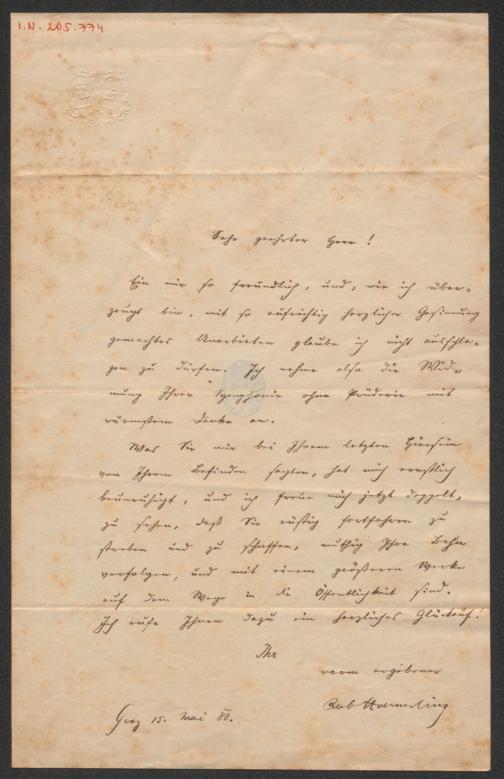 I.N. 205.774
Sehr geehrter Herr!
Ein mir so freundlich, und, wie ich über-
zeugt bin, mit so aufrichtig herzlicher Gesinnung
gemachtes Anerbieten glaube ich nicht ausschla-
gen zu dürfen. Ich nehme also die Wid-
mung Ihrer Symphonie ohne Prüderie mit
wärmstem Danke an.
Was Sie mir bei Ihrem letzten Hiersein
von Ihrem Befinden sagten, hat mich ernstlich
beunruhigt, und ich freue mich jetzt doppelt,
zu sehen, daß Sie rüstig fortfahren zu
streben und zu schaffen, muthig Ihre Bahn
verfolgen, und mit einem größeren Werke
auf dem Wege in die Öffentlichkeit sind.
Ich rufe Ihnen dazu ein herzliches Glückauf!
Ihr
warm ergebener
Rob Hamerling
Graz 15. Mai 80.